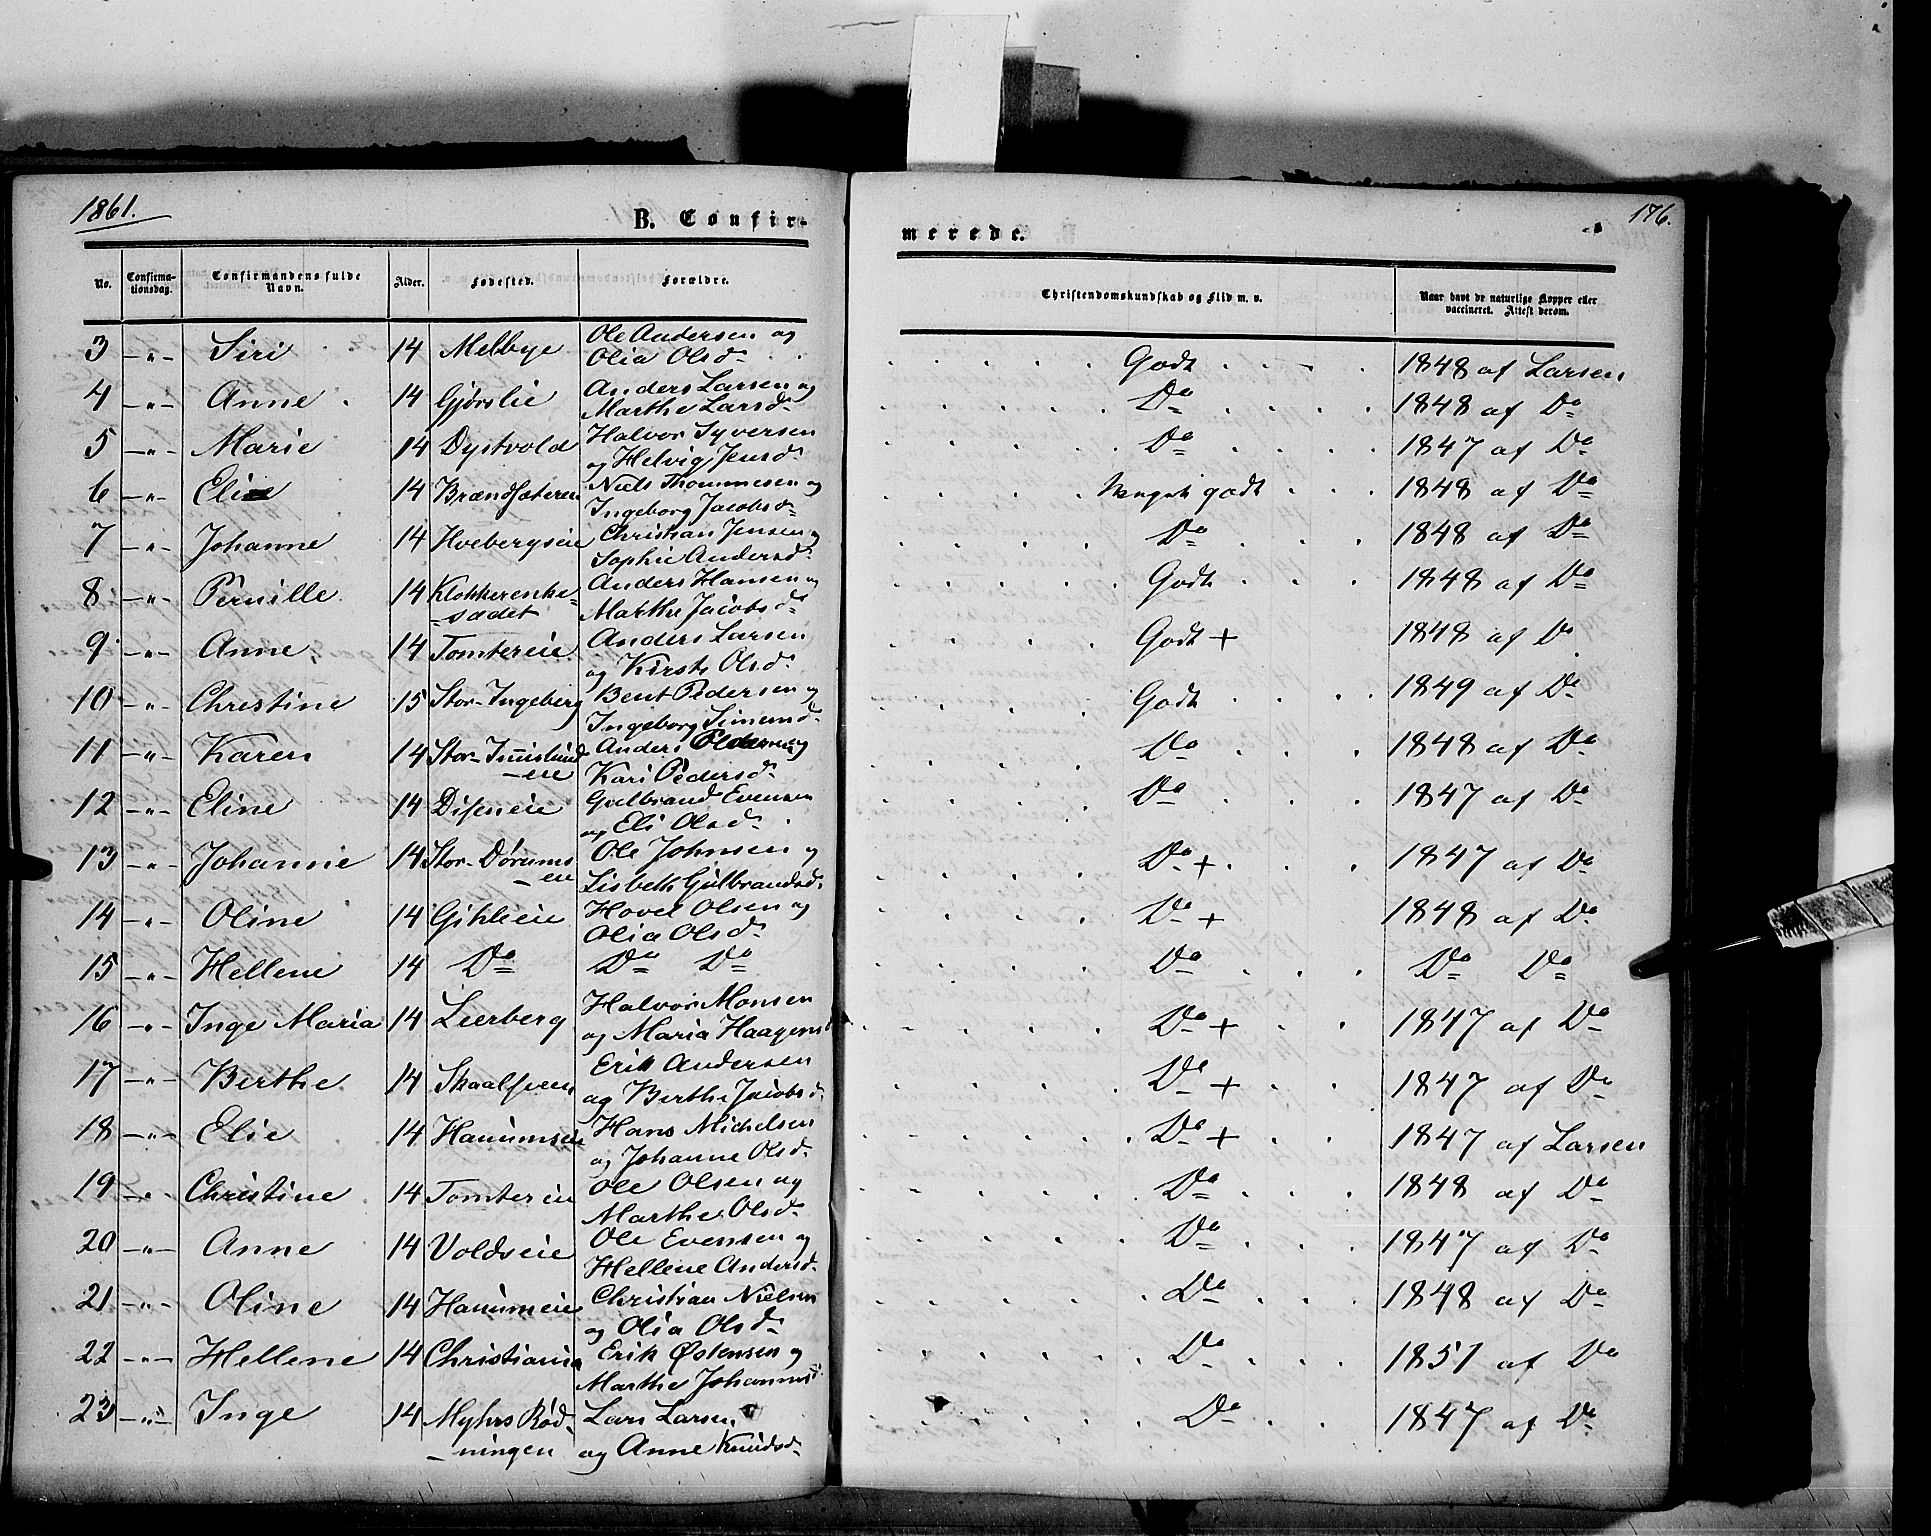 1861.
B. Confir-
merede.
176.
No. Confirma-tionsdag. Confirmandens fulde Navn. Alder. Fødested. Forældre. Christendomskundskab og Flid m. v. Naar havt de naturlige Kopper eller vaccineret. Attest derom.
3 -"- Siri 14 Melbye Ole Andersen og Olia Olsd. Godt 1848 af Larsen
4 -"- Anne 14 Gjørslie Anders Larsen og Marthe Larsd. Do 1848 af Do
5 -"- Marie 14 Dystvold Halvor Syversen og Helvig Jensd. Do 1847 af Do
6 -"- Elie 14 Brændsæteren Niels Thommesen og Ingeborg Jacobsd. Meget godt 1848 af Do
7 -"- Johanne 14 Hvebergseie Christian Jensen og Sophie Andersd. Do 1848 af Do
8 -"- Pernille 14 Klokkerenke-sædet Anders Hansen og Marthe Jacobsd. Godt 1848 af Do
9 -"- Anne 14 Tomtereie Anders Larsen og Kirsti Olsd. Godt + 1848 af Do
10 -"- Christine 15 Stor-Ingeberg Bent Pedersen og Ingeborg Simensd. Godt 1849 af Do
11 -"- Karen 14 Stor- -eie Anders Pedersen og Kari Pedersd. Do 1848 af Do
12 -"- Eline 14 Diseneie Gulbrand Evensen og Eli Olsd. Do 1847 af Do
13 -"- Johanne 14 Stor-Dørums -eie Ole Johnsen og Lisbeth Gulbrandsd. Do + 1847 af Do
14 -"- Oline 14 Gihleeie Hovel Olsen og Olia Olsd. Do + 1848 af Do
15 -"- Hellene 14 Do Do Do Do Do Do
16 -"- Inge Maria 14 Lierberg Halvor Monsen og Maria Haagens Do + 1847 af Do
17 -"- Berthe 14 Skaalseren Erik Andersen og Berthe Jacobsd. Do + 1847 af Do
18 -"- Elie 14 Hanumseie Hans Michelsen og Johanne Olsd. Do + 1847 af Larsen
19 -"- Christine 14 Tomtereie Ole Olsen og Marthe Olsd. Do 1848 af Do
20 -"- Anne 14 Voldseie Ole Evensen og Hellene Andersd. Do 1847 af Do
21 -"- Oline 14 Hanumeie Christian Nielsen og Olia Olsd. Do 1848 af Do
22 -"- Hellene 14 Christiania Erik Østensen og Marthe Johannesd. Do 1851 af Do
23 -"- Inge 14 Myhrs Rød-ningen Lars Larsen og Anne Knudsd. Do 1847 af Do